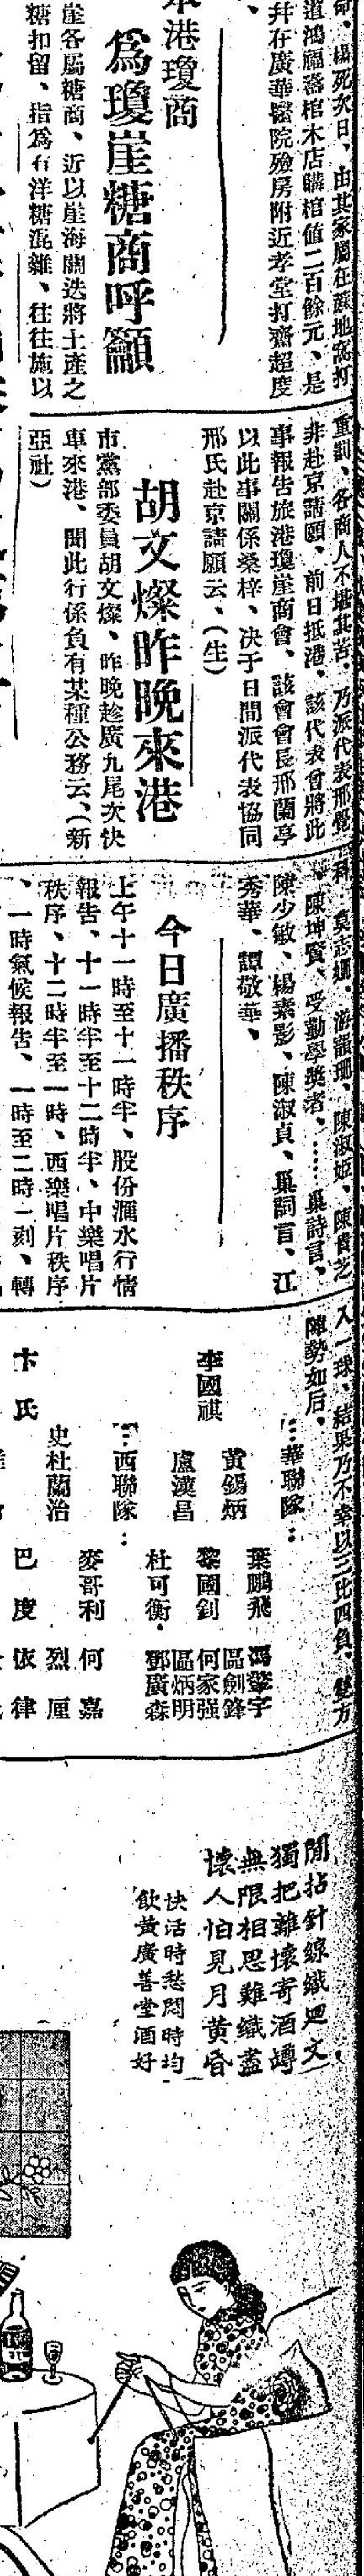 命、楊死次日、由其家屬在蘇地窩打
道鴻福壽棺木店購棺值二百餘元、是
井在廣華醫院殮房附近孝堂打齋超度
、
本港瓊商
為瓊崖糖商呼籲
崖各屬糖商、近以崖海關迭將土產之
糖扣留、指為有洋糖混雜、往往施以
重罰、各商人不堪其苦、乃派代表邢覺
非赴京請願、前日抵港、該代表曾將此
事報告旅港瓊崖商會、該會會長邢蘭亭
以此事關係桑梓、決于日間派代表協同
邢氏赴京請願云、（生）
胡文燦昨晚來港
市黨部委員胡文燦、昨晚趁廣九尾次快
車來港、聞此行係負有某種公務云、（新
亞社）
科 莫志姍、游韻珊、陳淑姬、陳貴之
、陳坤賢、受勤學獎者、……巢詩言、
陳少敏、楊素影、陳淑貞、巢詞言、江
秀華、譚敬華、
今日廣播秩序
上午十一時至十一時半、股份滙水行情
報告、十一時半至十二時半、中樂唱片
秩序、十二時半至一時、西樂唱片秩序
、一時氣候報告、一時至二時一刻、轉
入一球、結果乃不幸以三比四負、雙方
陣勢如后、
華聯隊：
葉鵬飛 馮擎宇
黃錫炳 區劍鋒
李國祺 黎國釗 何家强
盧漢昌 區炳明
杜可衡 鄧廣森
西聯隊：
麥哥利 何嘉
史杜蘭治 烈厘
卞氏 巴度 依律
閒拈針線織迴文
獨把離懷寄酒罇
無限相思難織盡
懷人怕見月黃昏
快活時愁悶時均
飲黃廣善堂酒好